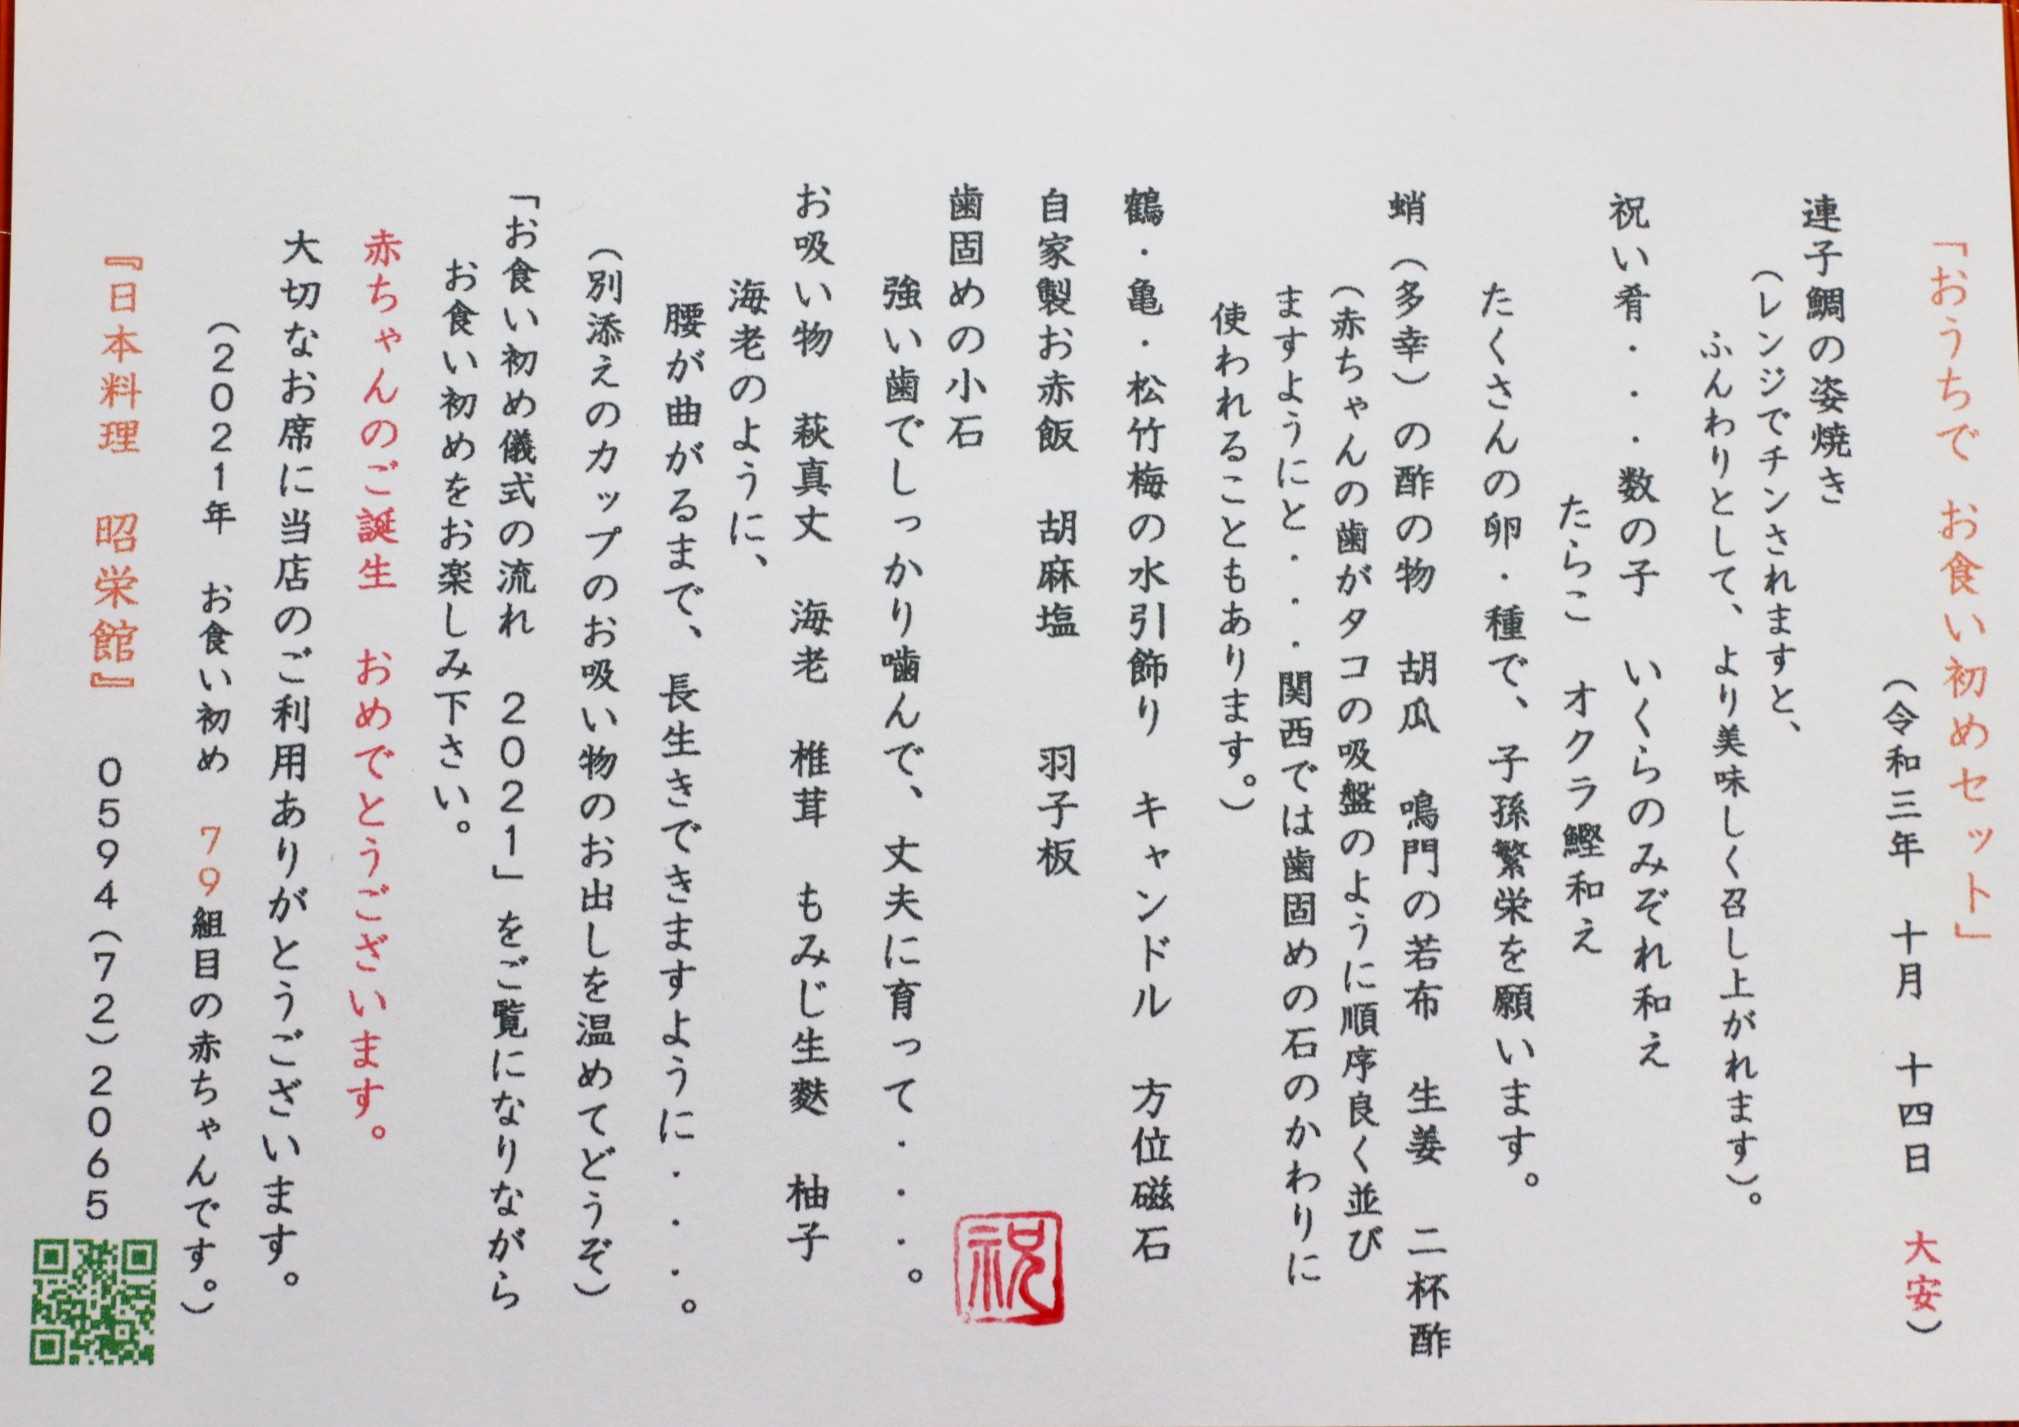 「おうちで　お食い初めセット」
（令和三年　十月　十四日　大安）
連子鯛の姿焼き
（レンジでチンされますと、
ふんわりとして、より美味しく召し上がれます）。
祝い肴・・・数の子　いくらのみぞれ和え
たらこ　オクラ鰹和え
たくさんの卵・種で、子孫繁栄を願います。
蛸（多幸）の酢の物　胡瓜　鳴門の若布　生姜　二杯酢
（赤ちゃんの歯がタコの吸盤のように順序良く並び
ますようにと・・・関西では歯固めの石のかわりに
使われることもあります。）
鶴・亀・松竹梅の水引飾り　キャンドル　方位磁石
自家製お赤飯　胡麻塩　　羽子板
歯固めの小石
祝
強い歯でしっかり噛んで、丈夫に育って・・・。
お吸い物　萩真丈　海老　椎茸　もみじ生麩　柚子
海老のように、
腰が曲がるまで、長生きできますように・・・。
（別添えのカップのお吸い物のお出しを温めてどうぞ）
「お食い初め儀式の流れ　２０２１」をご覧になりながら
お食い初めをお楽しみ下さい。
赤ちゃんのご誕生　おめでとうございます。
大切なお席に当店のご利用ありがとうございます。
（２０２１年　お食い初め　７９組目の赤ちゃんです。）
『日本料理　昭栄館』　０５９４（７２）２０６５